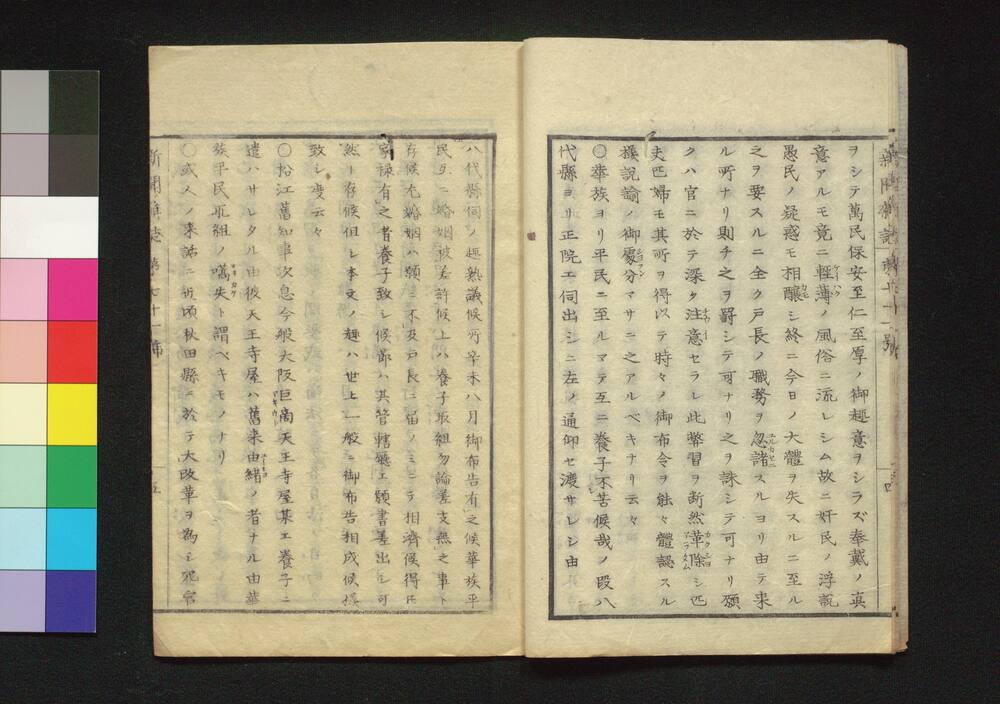 ヲシテ萬民保安至仁至厚ノ御趣意ヲシラズ奉戴ノ眞
意アルモ竟ニ輕薄ノ風俗ニ流レシム故ニ奸民ノ浮説
愚民ノ疑惑モ相釀シ終ニ今日ノ大體ヲ失スルニ至ル
之ヲ要スルニ全ク戸長ノ職務ヲ忽諸スルヨリ由テ来
ル所ナリ則チ之ヲ罸シテ可ナリ之ヲ誅シテ可ナリ願
クハ官ニ於テ深ク注意セラレ此弊習ヲ断然革除シ匹
夫匹婦モ其所ヲ得以テ時々ノ御布令ヲ能々體認スル
様説諭ノ御處分マサニ之アルベキナリ云々
〇華族ヨリ平民ニ至ルマテ互ニ養子不苦候哉ノ段八
代縣ヨリ正院エ伺出シニ左ノ通仰セ渡サレシ由
八代縣伺ノ趣熟議候所辛未八月御布告有之候華族平
民互ニ婚姻被差許候上ハ養子取組勿論差支無之事ト
存候尤婚姻ハ願ニ不及戸長ニ届ノミニテ相濟候得𪜈
家禄有之者養子致シ候節ハ其管轄廳エ願書差出シ可
然ト存候但シ本文ノ趣ハ世上一般ニ御布告相成候様
致シ度云々
〇松江舊知事次息今般大阪巨商天王寺屋某エ養子ニ
遣ハサレタル由彼天王寺屋ハ舊来由緒ノ者ナル由華
族平民取組ノ嚆矢ト謂ベキモノナリ
〇或人ノ来話ニ近頃秋田縣ニ於テ大改革ヲ為シ